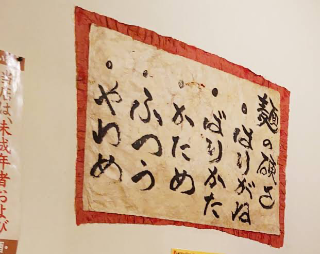 麺の硬さ
・ばりがね
・ばりかた
・かため
・ふつう
・やわめ
当店は、未成年者および